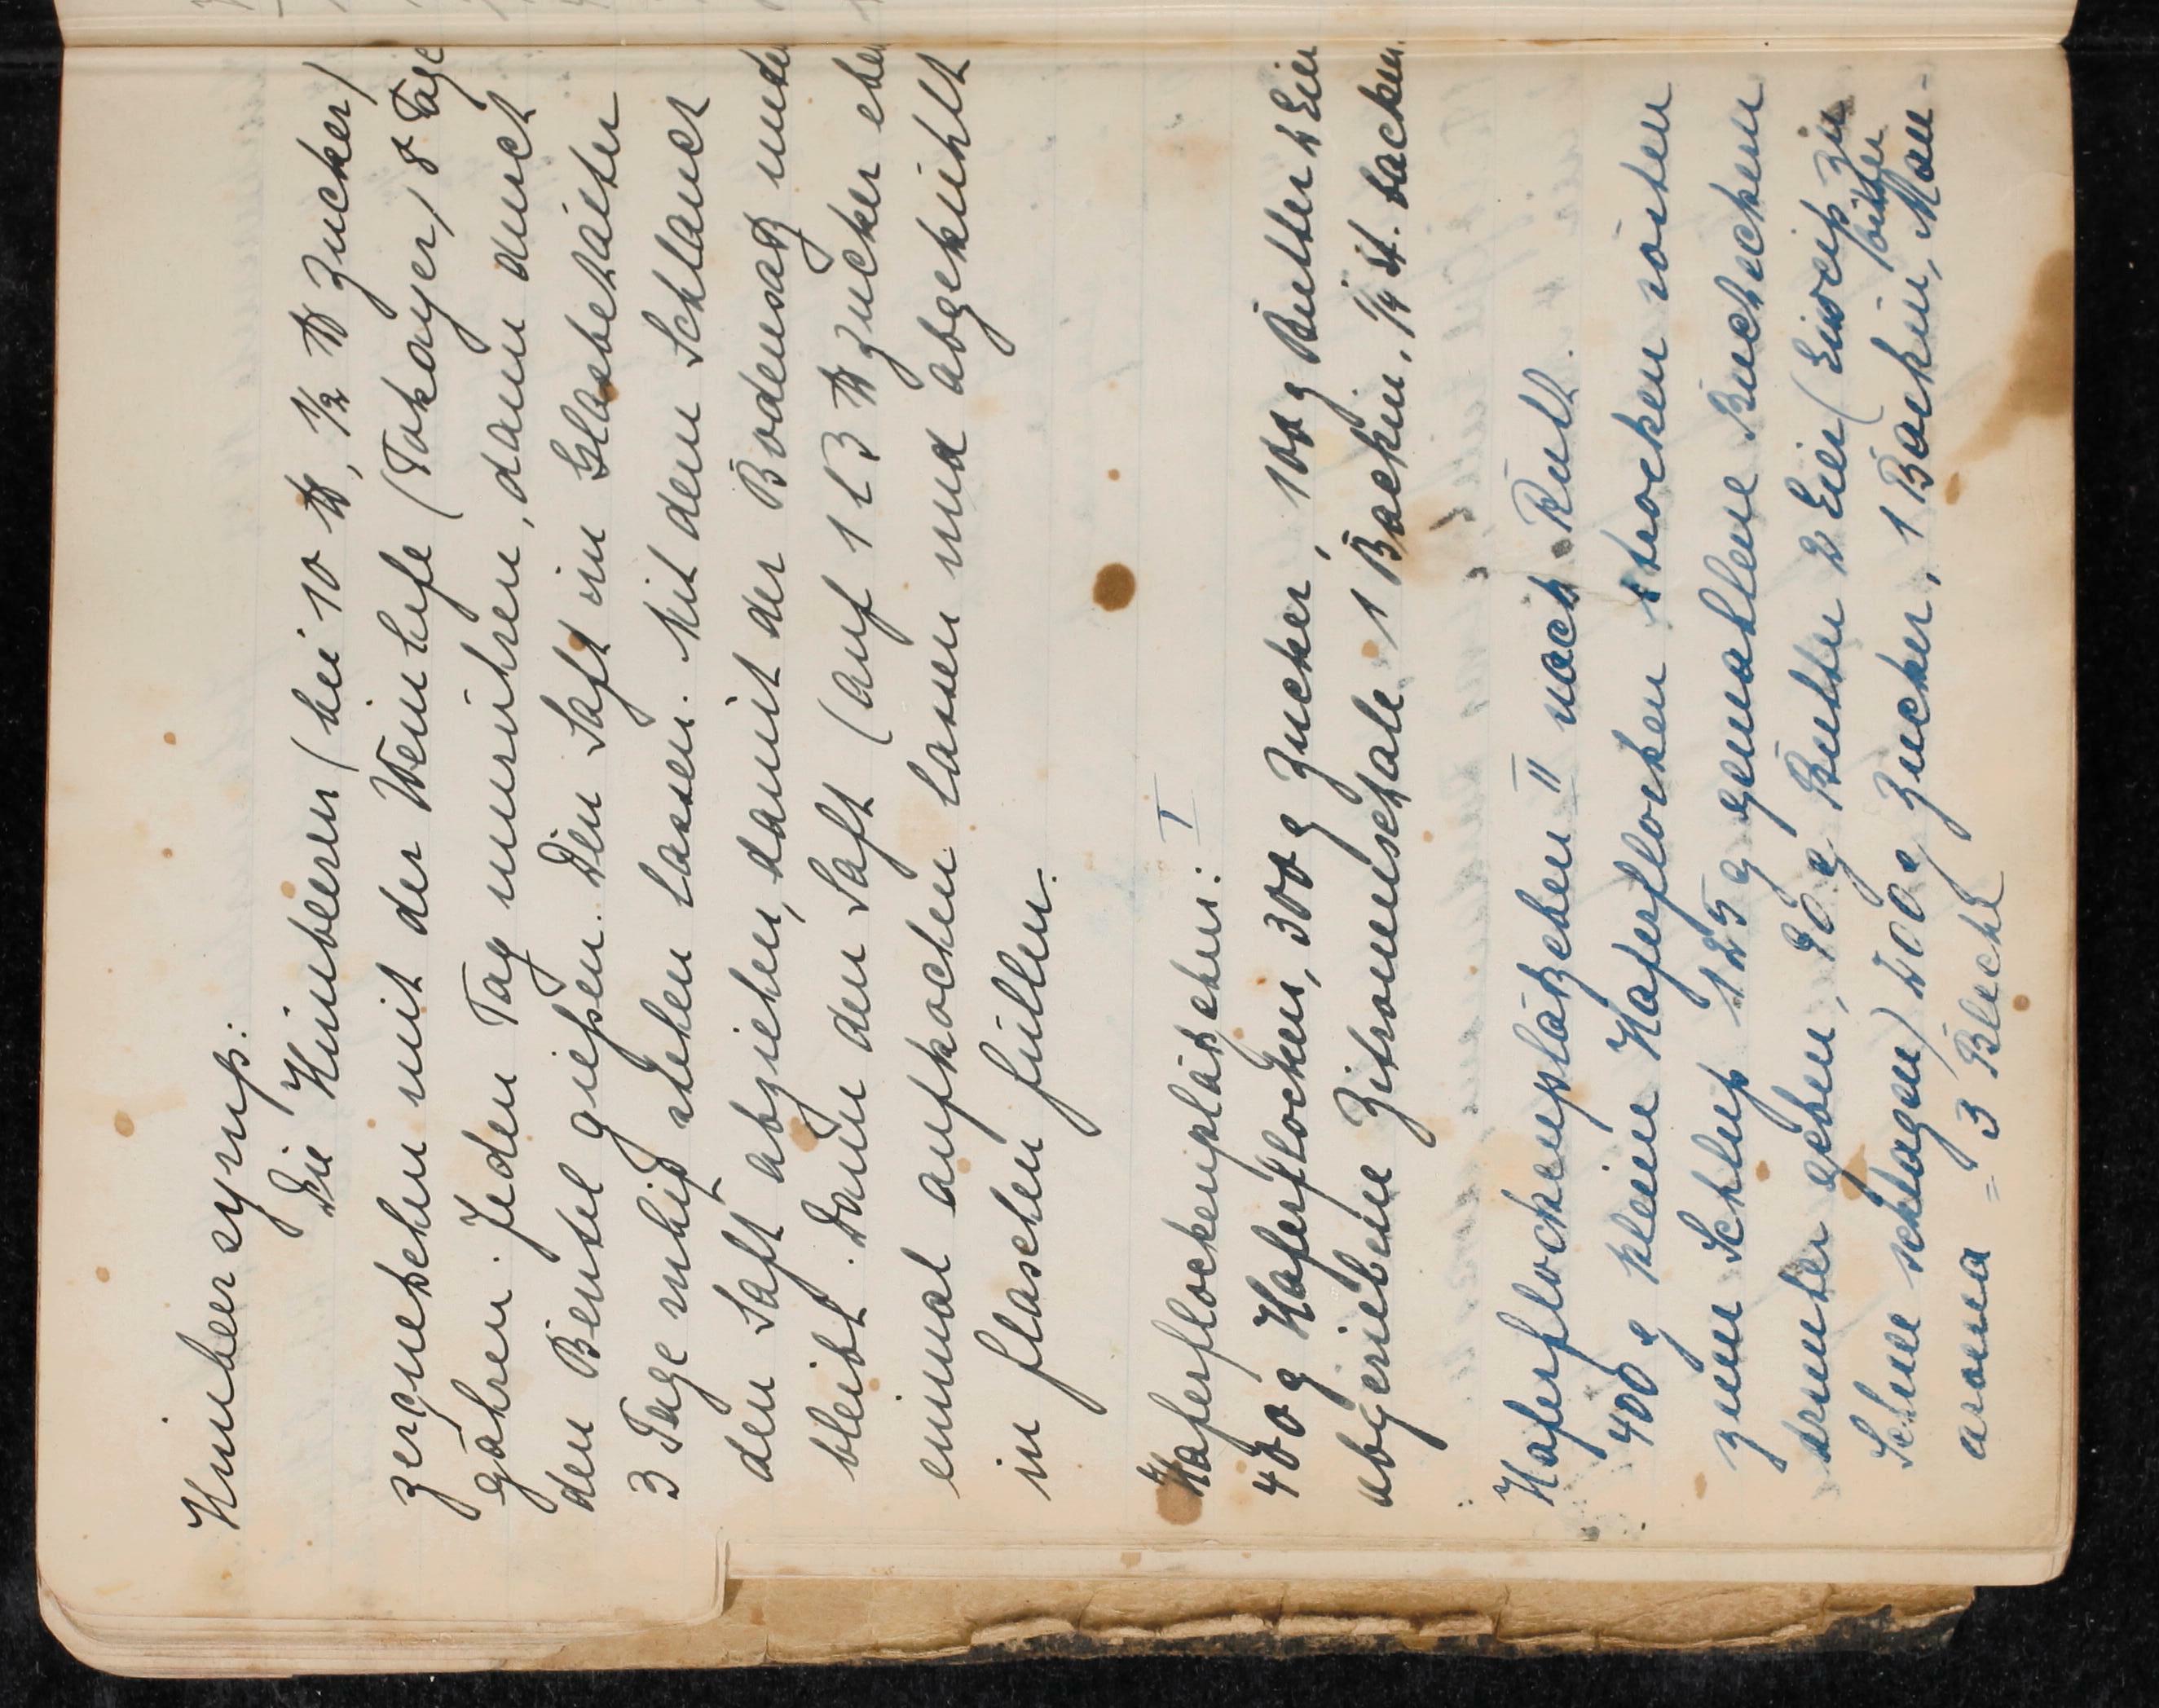 Himbeersyrup:
Die Himbeeren (bei 10 ℔, ½ ℔ Zucker)
zerquetschen mit der Weinhefe (Tokayer) 8 Tage
gähren. Jeden Tag umrühren, dann durch
den Beutel gießen. Den Saft im Glasbehälter
3 Tage ruhig stehen lassen. Mit dem Schlauch
den Saft abziehen, damit der Bodensatz unten
bleibt. Dann den Saft (auf 1 l 3 ℔ Zucker
einmal aufkochen lassen und abgekühlt
in flaschen füllen.
Haferflockenplätzchen: I
400 g Haferflocken, 300 g Zucker, 100 g Butter 2 Eier
abgeriebene Zitronenschale 1 Backin. ¼ st. backen.
Haferflockenplätzchen II nach Ruth.
400 g kleine Haferflocken trocken rösten
zum Schluß 125 g gemahlene Bucheckern
drunter geben, 90 g Butter 2 Eier (Eiweiß zu
Schnee schlagen) 200 g Zucker, 1 Backin, bitter Man-
aroma = 3 Bleche